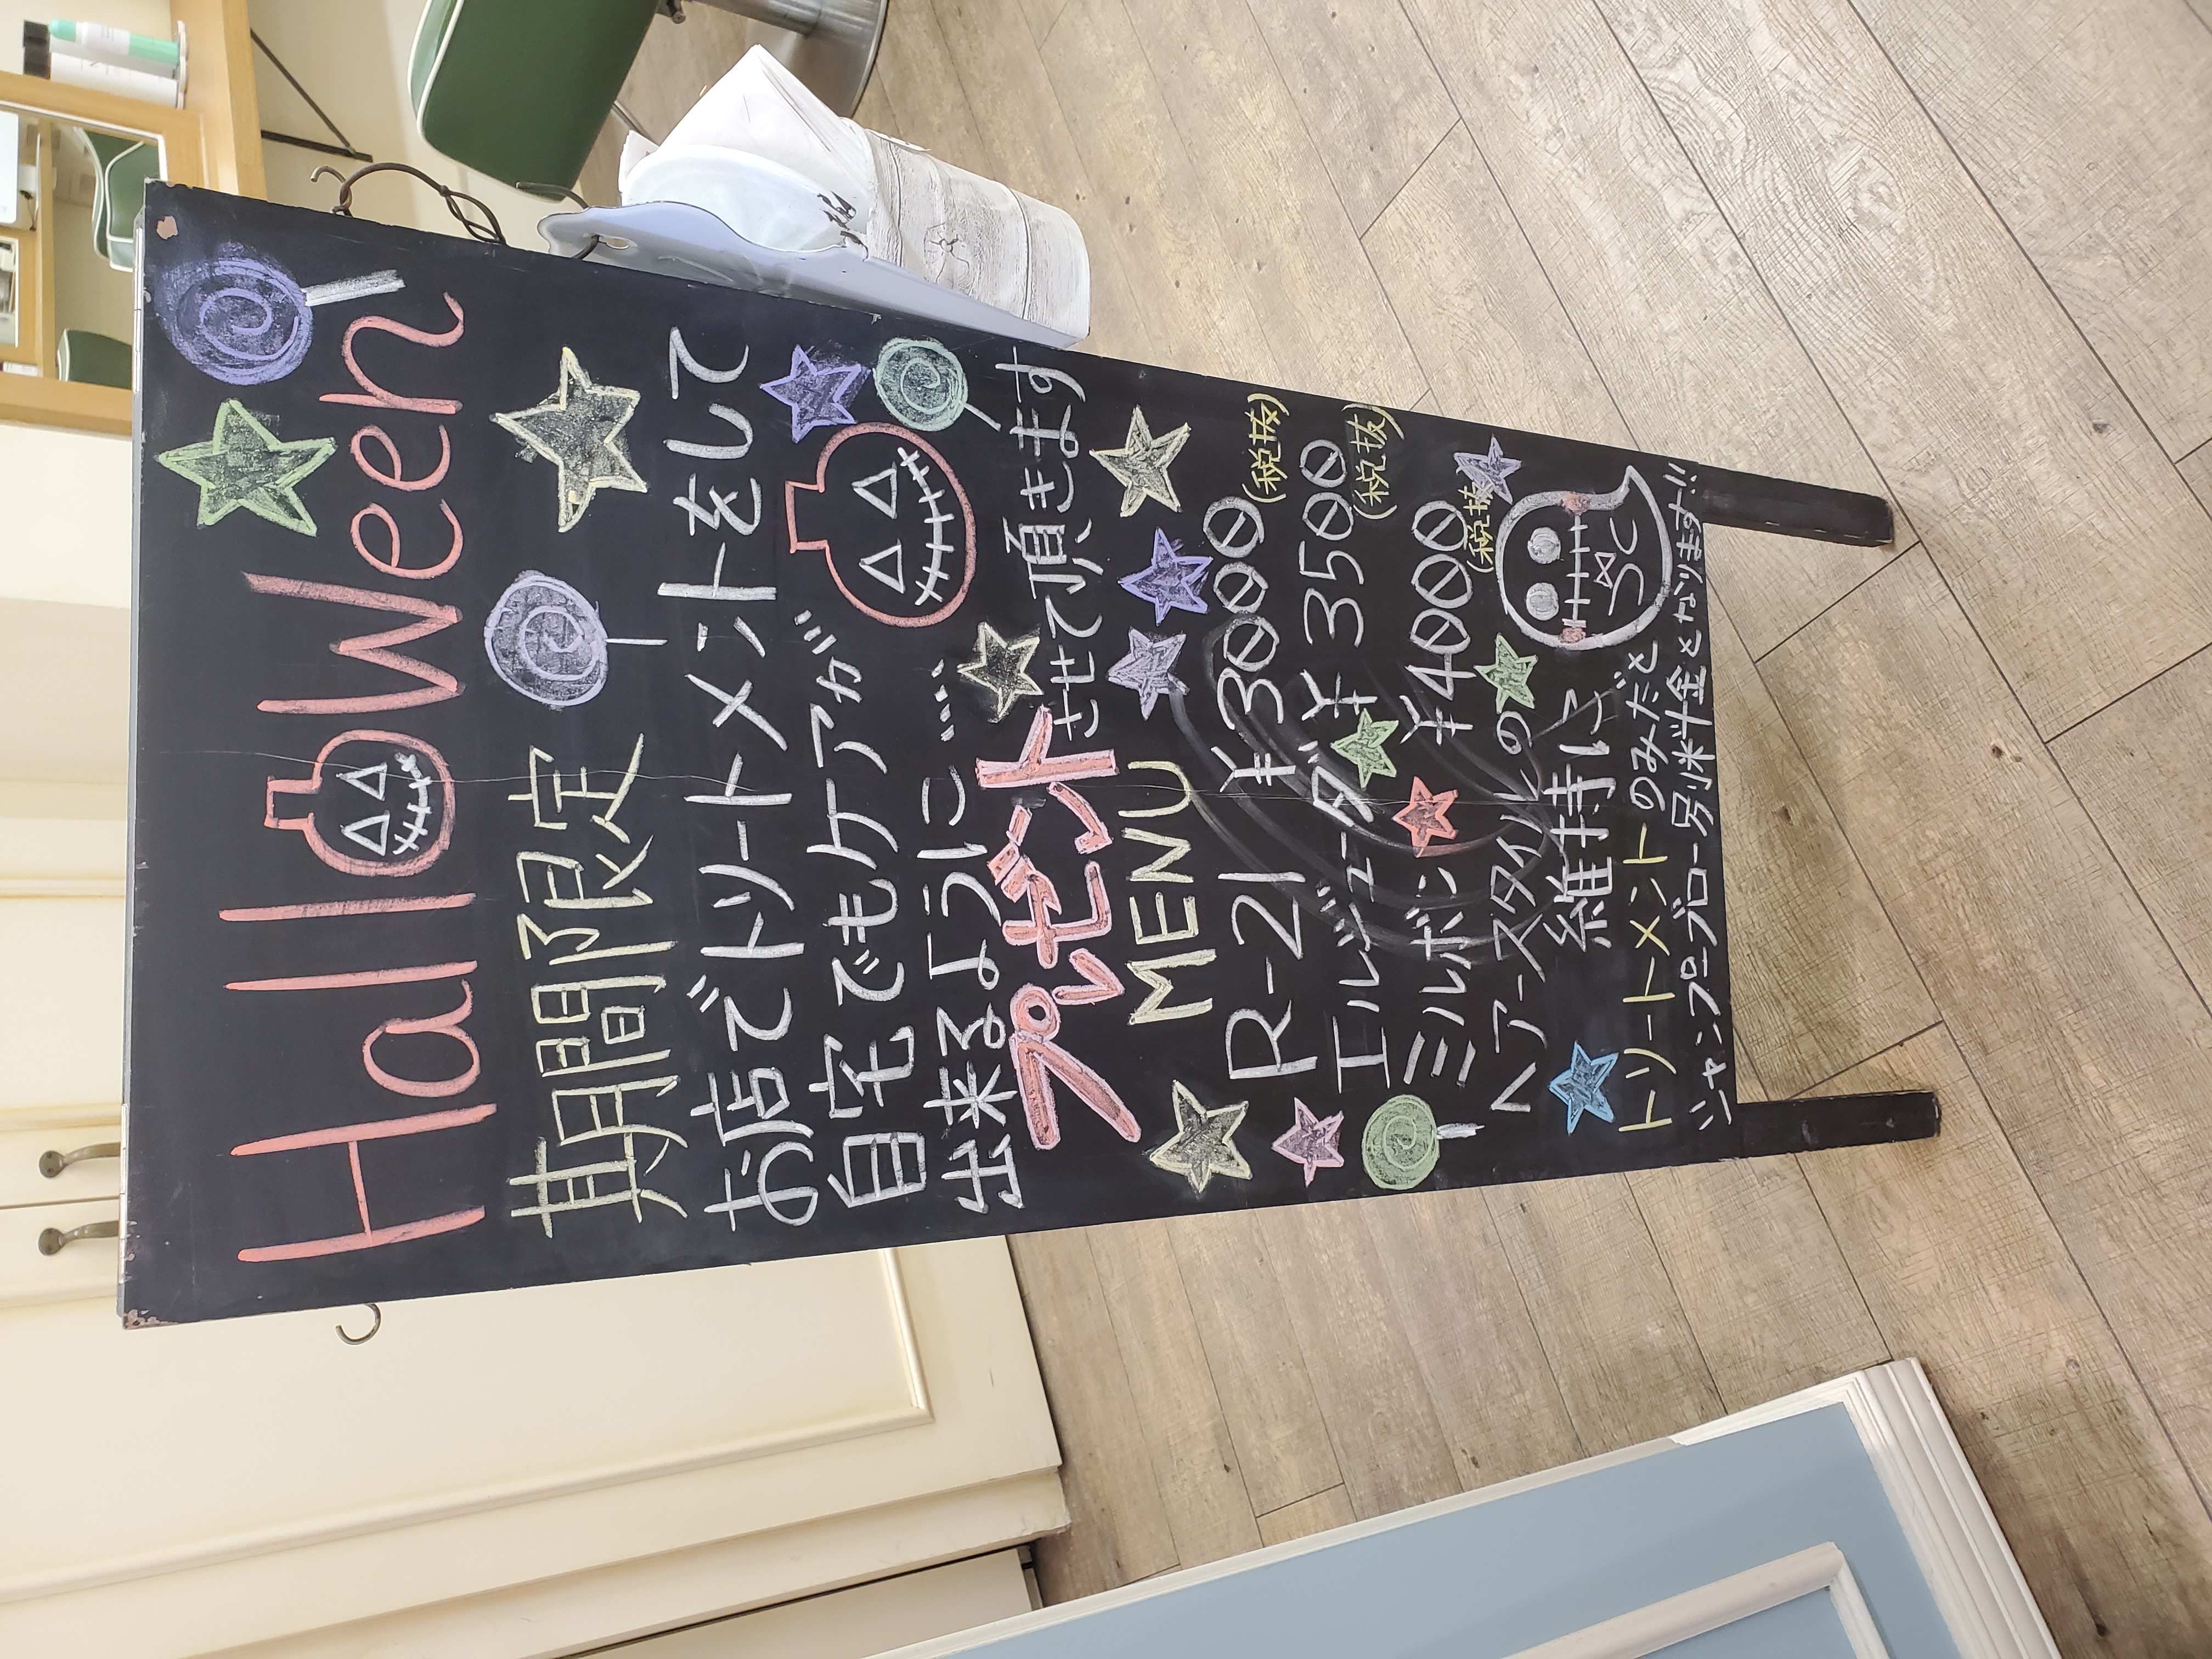 Halloween
期間限定
お店でトリートメントをして
自宅でもケアが
出来るように…
プレゼントさせて頂きます
MENU
R-21 ¥3000(税抜)
エルジューダ ¥3500(税抜)
ミルボン ¥4000(税抜)
ヘアースタイルの
維持に
トリートメントのみだと
シャンプーブロー別料金となります!!